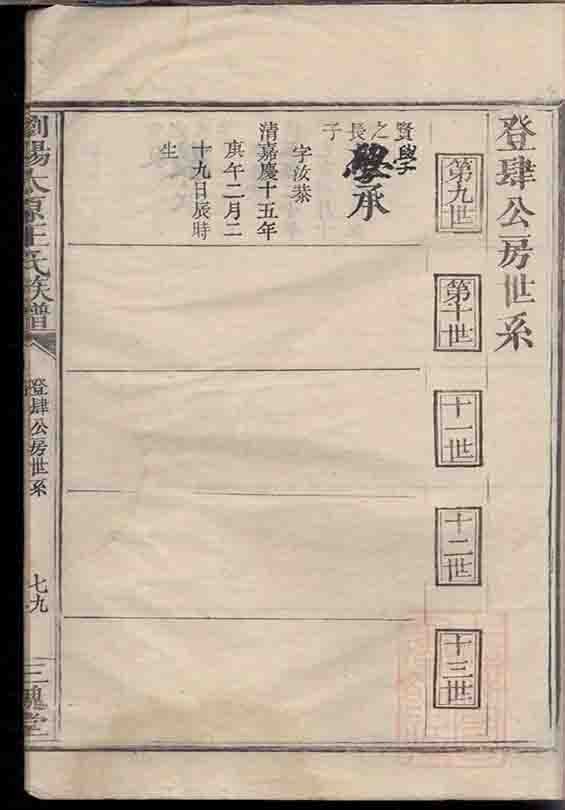 登肆公房世系
第九世
第十世
十一世
十二世
十三世
賢學
之長子
學承
字汝恭
清嘉慶十五年
庚午二月二
十九日辰時
生
瀏陽太原王氏族譜
登肆公房世系
七九
三槐堂